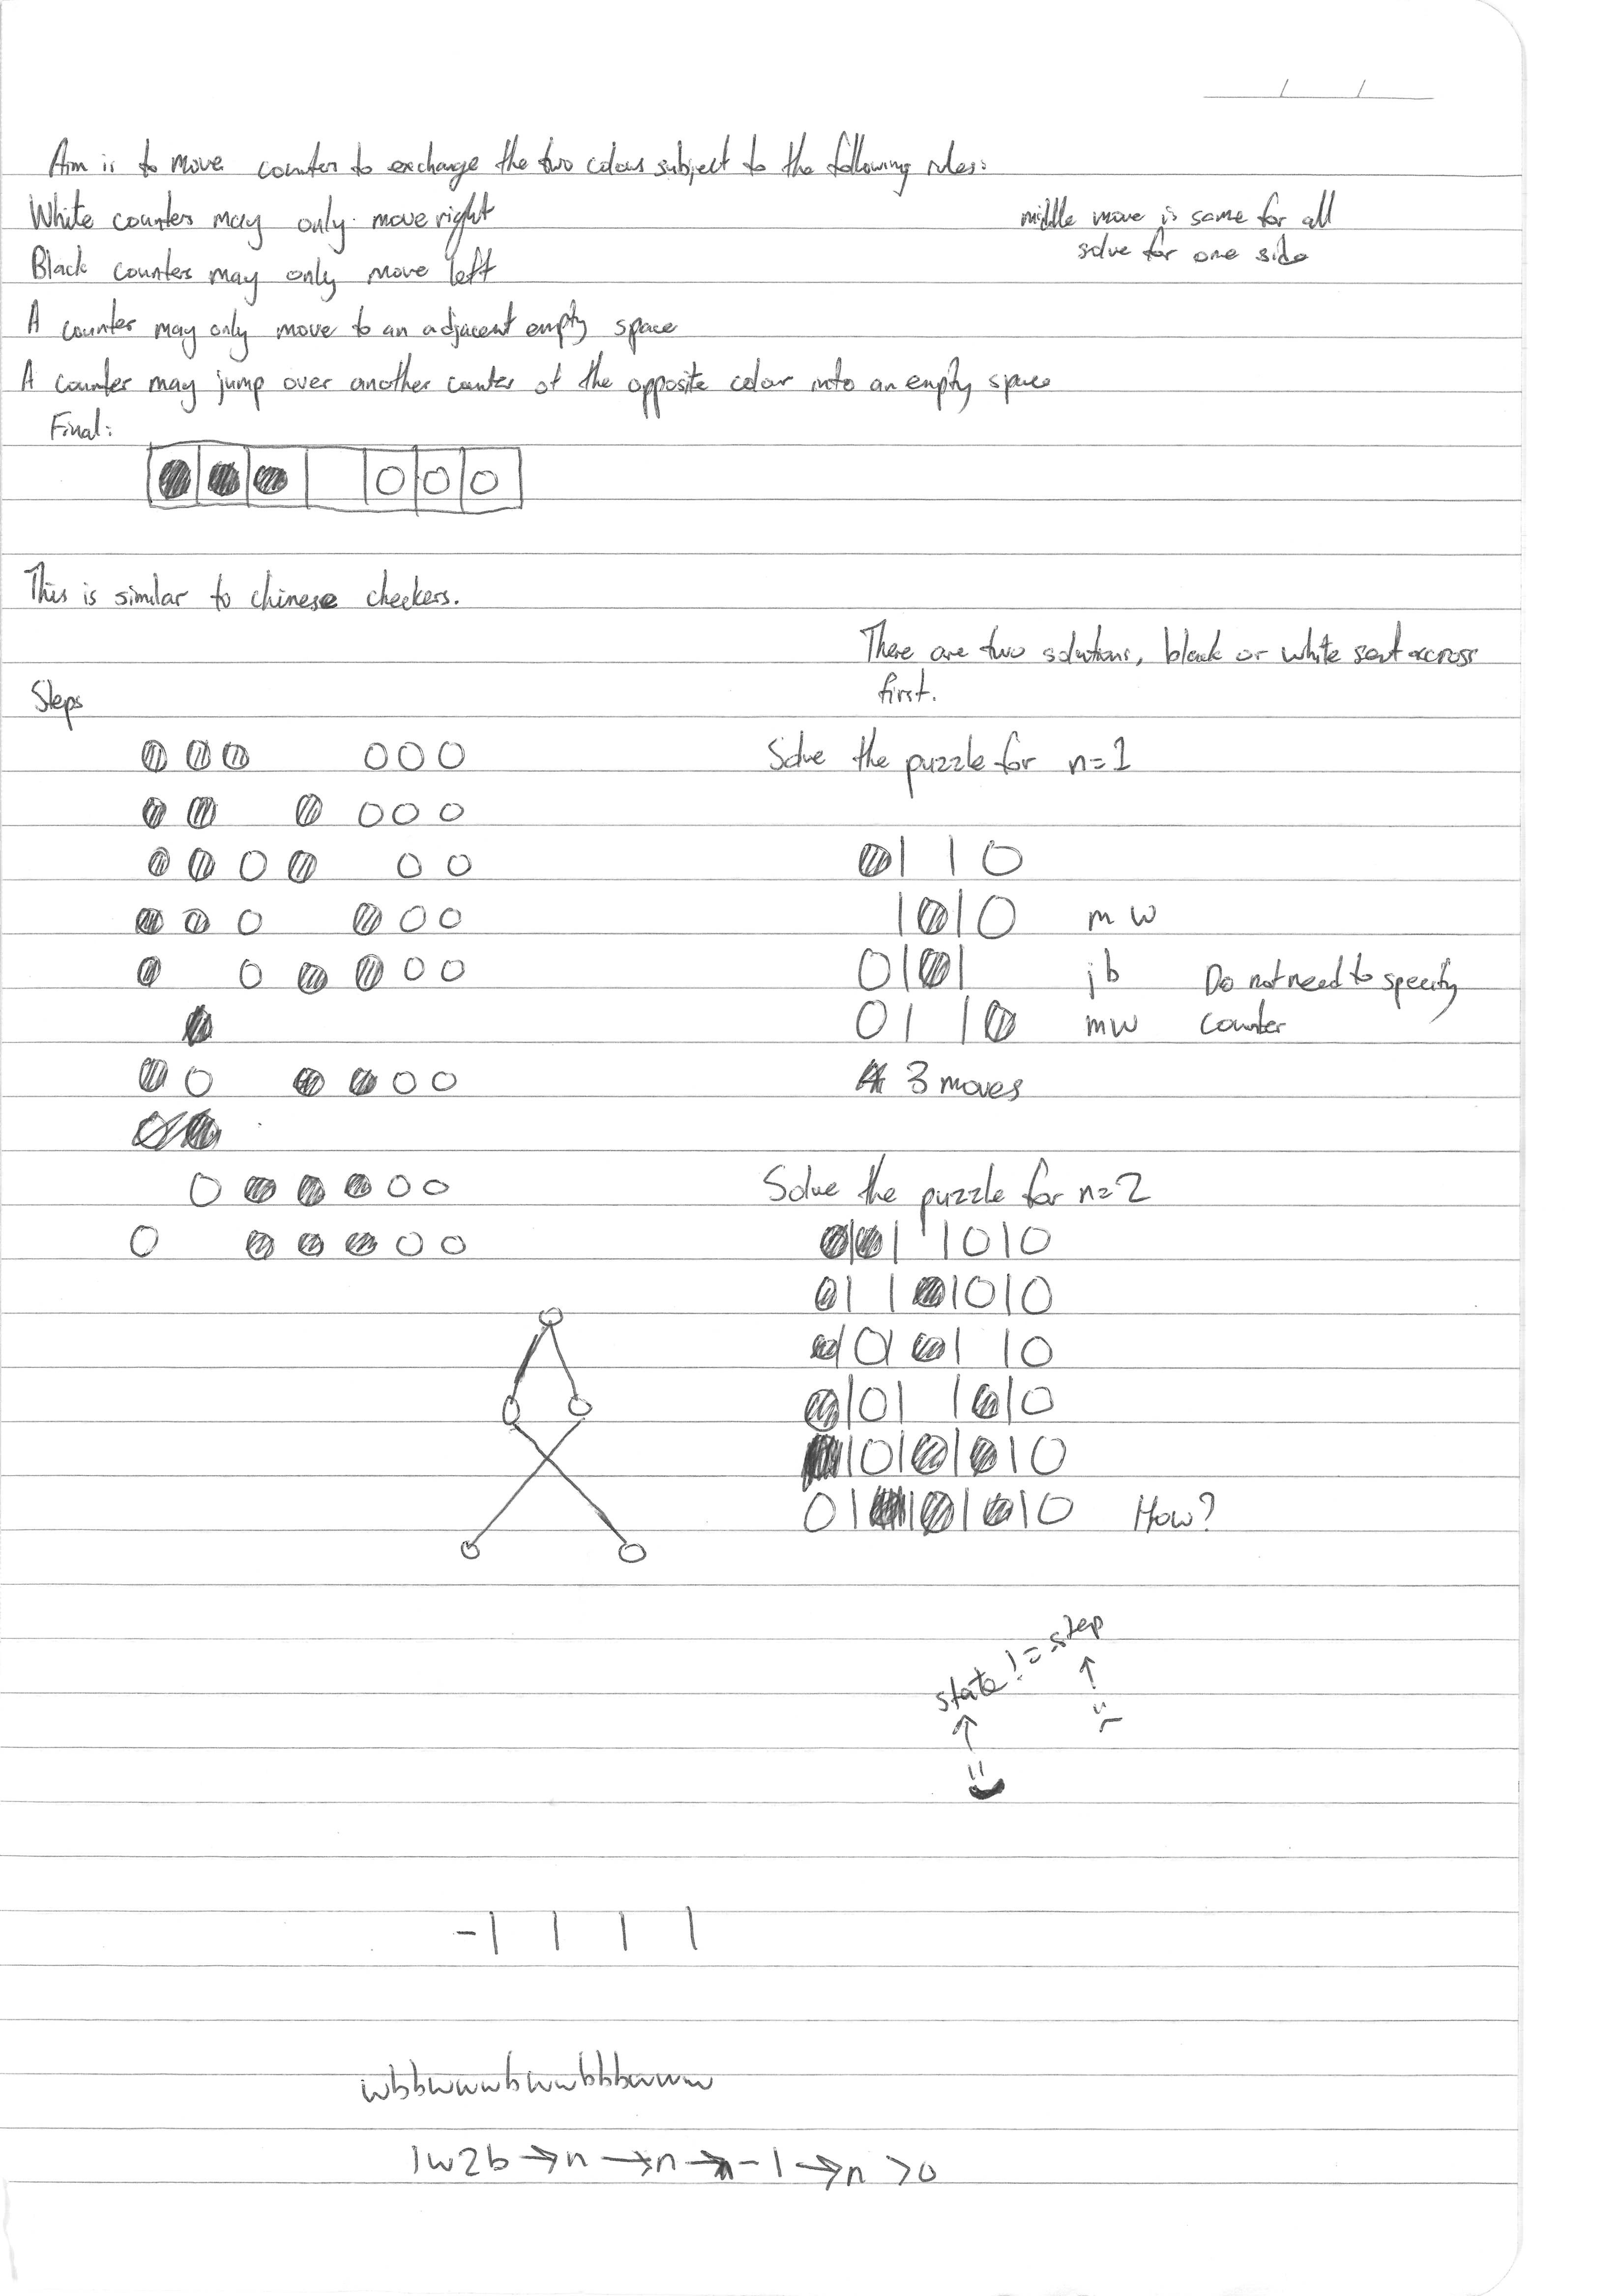 Aim is to move counter to exchange the two colours subject to the following rules:
White counters may only move right
middle move is same for all
solve for one side
Black counters may only move left
A counter may only move to an adjacent empty space
A counter may jump over another counter of the opposite colour into an empty space
Final:
This is similar to chinese checkers.
There are two solutions, black or white sent accross
first.
Steps
Solve the puzzle for n=1
m w
jb Do not need to specify
mw counter
3 moves
Solve the puzzle for n=2
How?
state != step
-| | | |
wbbwwwbwwbbbwww
1w2b → n → n → n-1 → n > 0